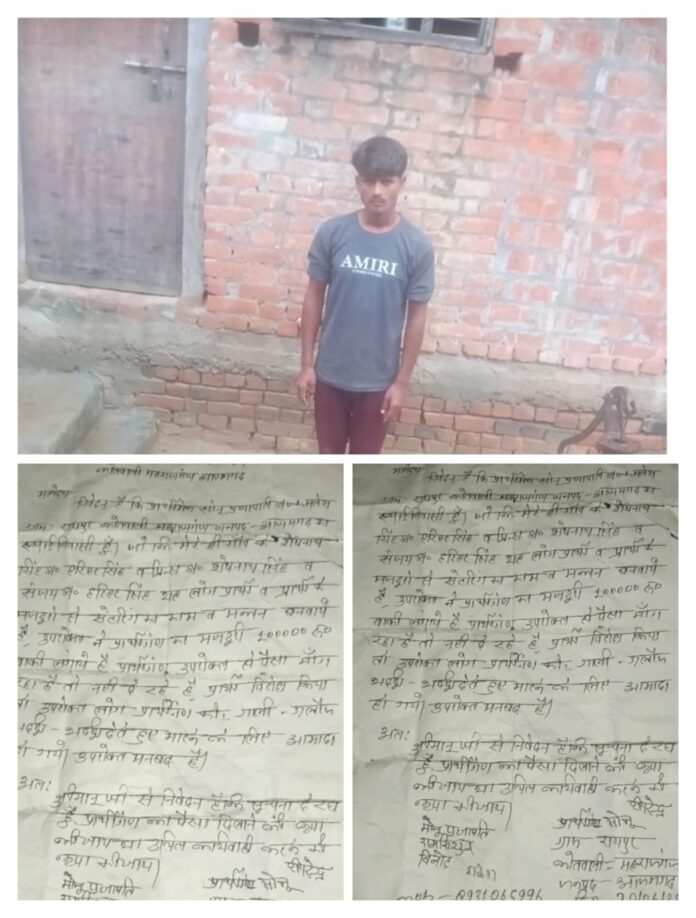 AMIRI
कोतवाली महराजगंज आजमगढ़
महोदय
निवेदन है कि प्रार्थीगण सोनू प्रजापति
ग्राम रायपुर कोतवाली महराजगंज जनपद - आजमगढ़ का
स्थाई निवासी है। जो कि मेरे ही गाँव के शेषनाथ
सिंह s/o हरिहर सिंह व प्रिंस s/o शेषनाथ सिंह व
संजय s/o हरिहर सिंह यह लोग प्रार्थी व प्रार्थी के
मजदूरो से सेटरिंग का काम व मकान बनवाये
है, उपरोक्त ने प्रार्थीगण का मजदूरी 100000 रु०
बाकी लगाये है प्रार्थीगण उपरोक्त से पैसा माँग
रहा है तो नही दे रहे है, प्रार्थी विरोध किया
तो उपरोक्त लोग प्रार्थीगण को, गाली - गलौज
देते हुए मारने के लिए आमादा
हो गये। उपरोक्त मनबढ़ है।
अतः
श्रीमान् जी से निवेदन है कि सूचना दे रहा
है प्रार्थीगण का पैसा दिलाने की कृपा
की जाय या उचित कार्यवाही करने की
कृपा की जाय।
मोनू प्रजापति
प्रार्थीगण सोनू
महोदय
निवेदन है कि प्रार्थीगण सोनू प्रजापति
ग्राम रायपुर कोतवाली महराजगंज जनपद - आजमगढ़ का
स्थाई निवासी है। जो कि मेरे ही गाँव के शेषनाथ
सिंह s/o हरिहर सिंह व प्रिंस s/o शेषनाथ सिंह व
संजय s/o हरिहर सिंह यह लोग प्रार्थी व प्रार्थी के
मजदूरो से सेटरिंग का काम व मकान बनवाये
है, उपरोक्त ने प्रार्थीगण का मजदूरी 100000 रु०
बाकी लगाये है प्रार्थीगण उपरोक्त से पैसा माँग
रहा है तो नही दे रहे है, प्रार्थी विरोध किया
तो उपरोक्त लोग प्रार्थीगण को, गाली - गलौज
देते हुए मारने के लिए आमादा
हो गये। उपरोक्त मनबढ़ है।
अतः
श्रीमान् जी से निवेदन है कि सूचना दे रहा
है प्रार्थीगण का पैसा दिलाने की कृपा
की जाय या उचित कार्यवाही करने की
कृपा की जाय।
मोनू प्रजापति
प्रार्थीगण सोनू
ग्राम - रायपुर
विनोद
कोतवाली - महराजगंज
जनपद - आजमगढ़